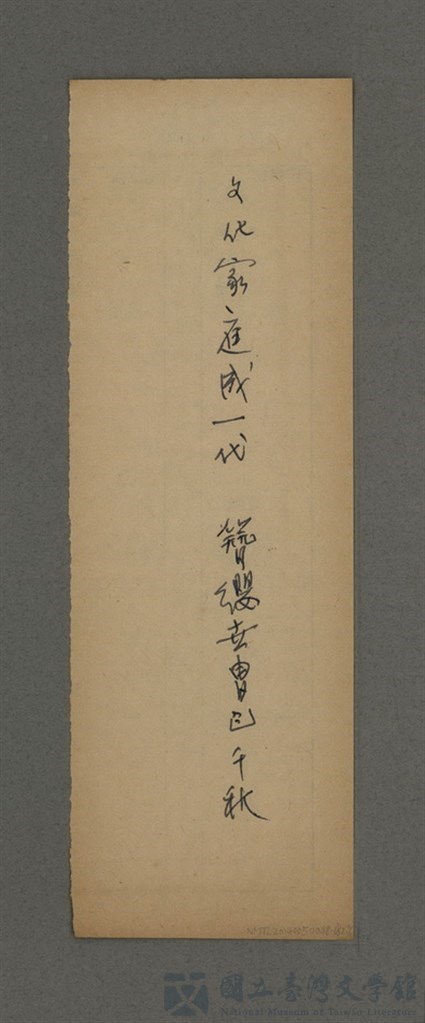 文化家庭成一代　簪纓世胄已千秋
國立臺灣文學館
National Museum of Taiwan Literature